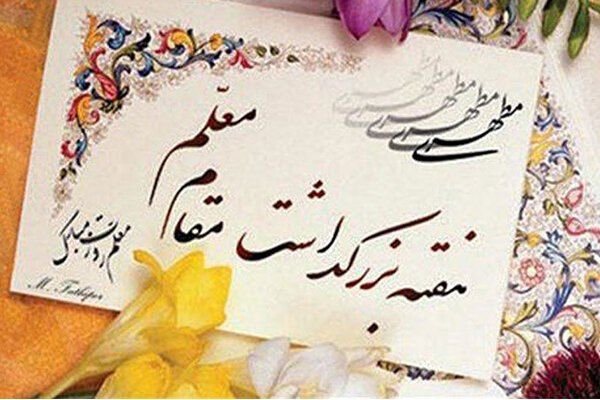 مطهری مطهری مطهری مطهری
هفته بزرگداشت مقام معلم
معلم روزت مبارک
M. Fathipor